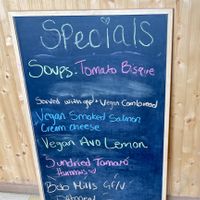 Specials
Soups: Tomato Bisque
Served with gf + Vegan Cornbread
Vegan Smoked Salmon
Cream cheese
Vegan Avo Lemon
Sundried Tomato
Hummus
Bob Mills GF/V
Oatmeal